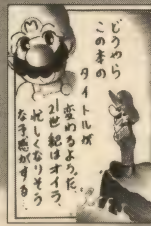 どうやら
この本の
タイトルが
変わるようだ。
21世紀はオイラ、
忙しくなりそう
な予感がする…